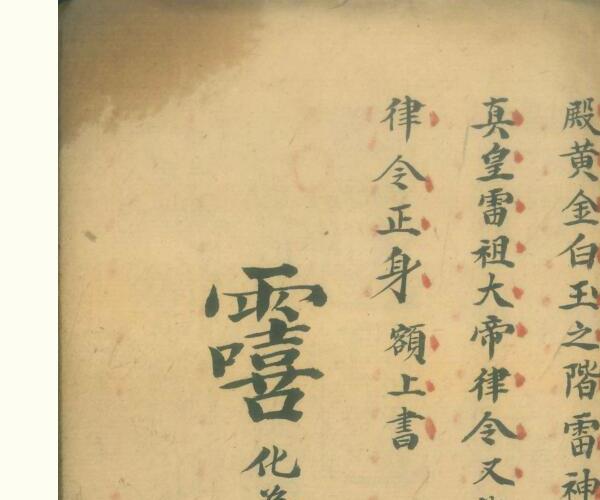 殿黄金白玉之階雷神
真皇雷祖大帝律令又
律令正身 額上書
化為